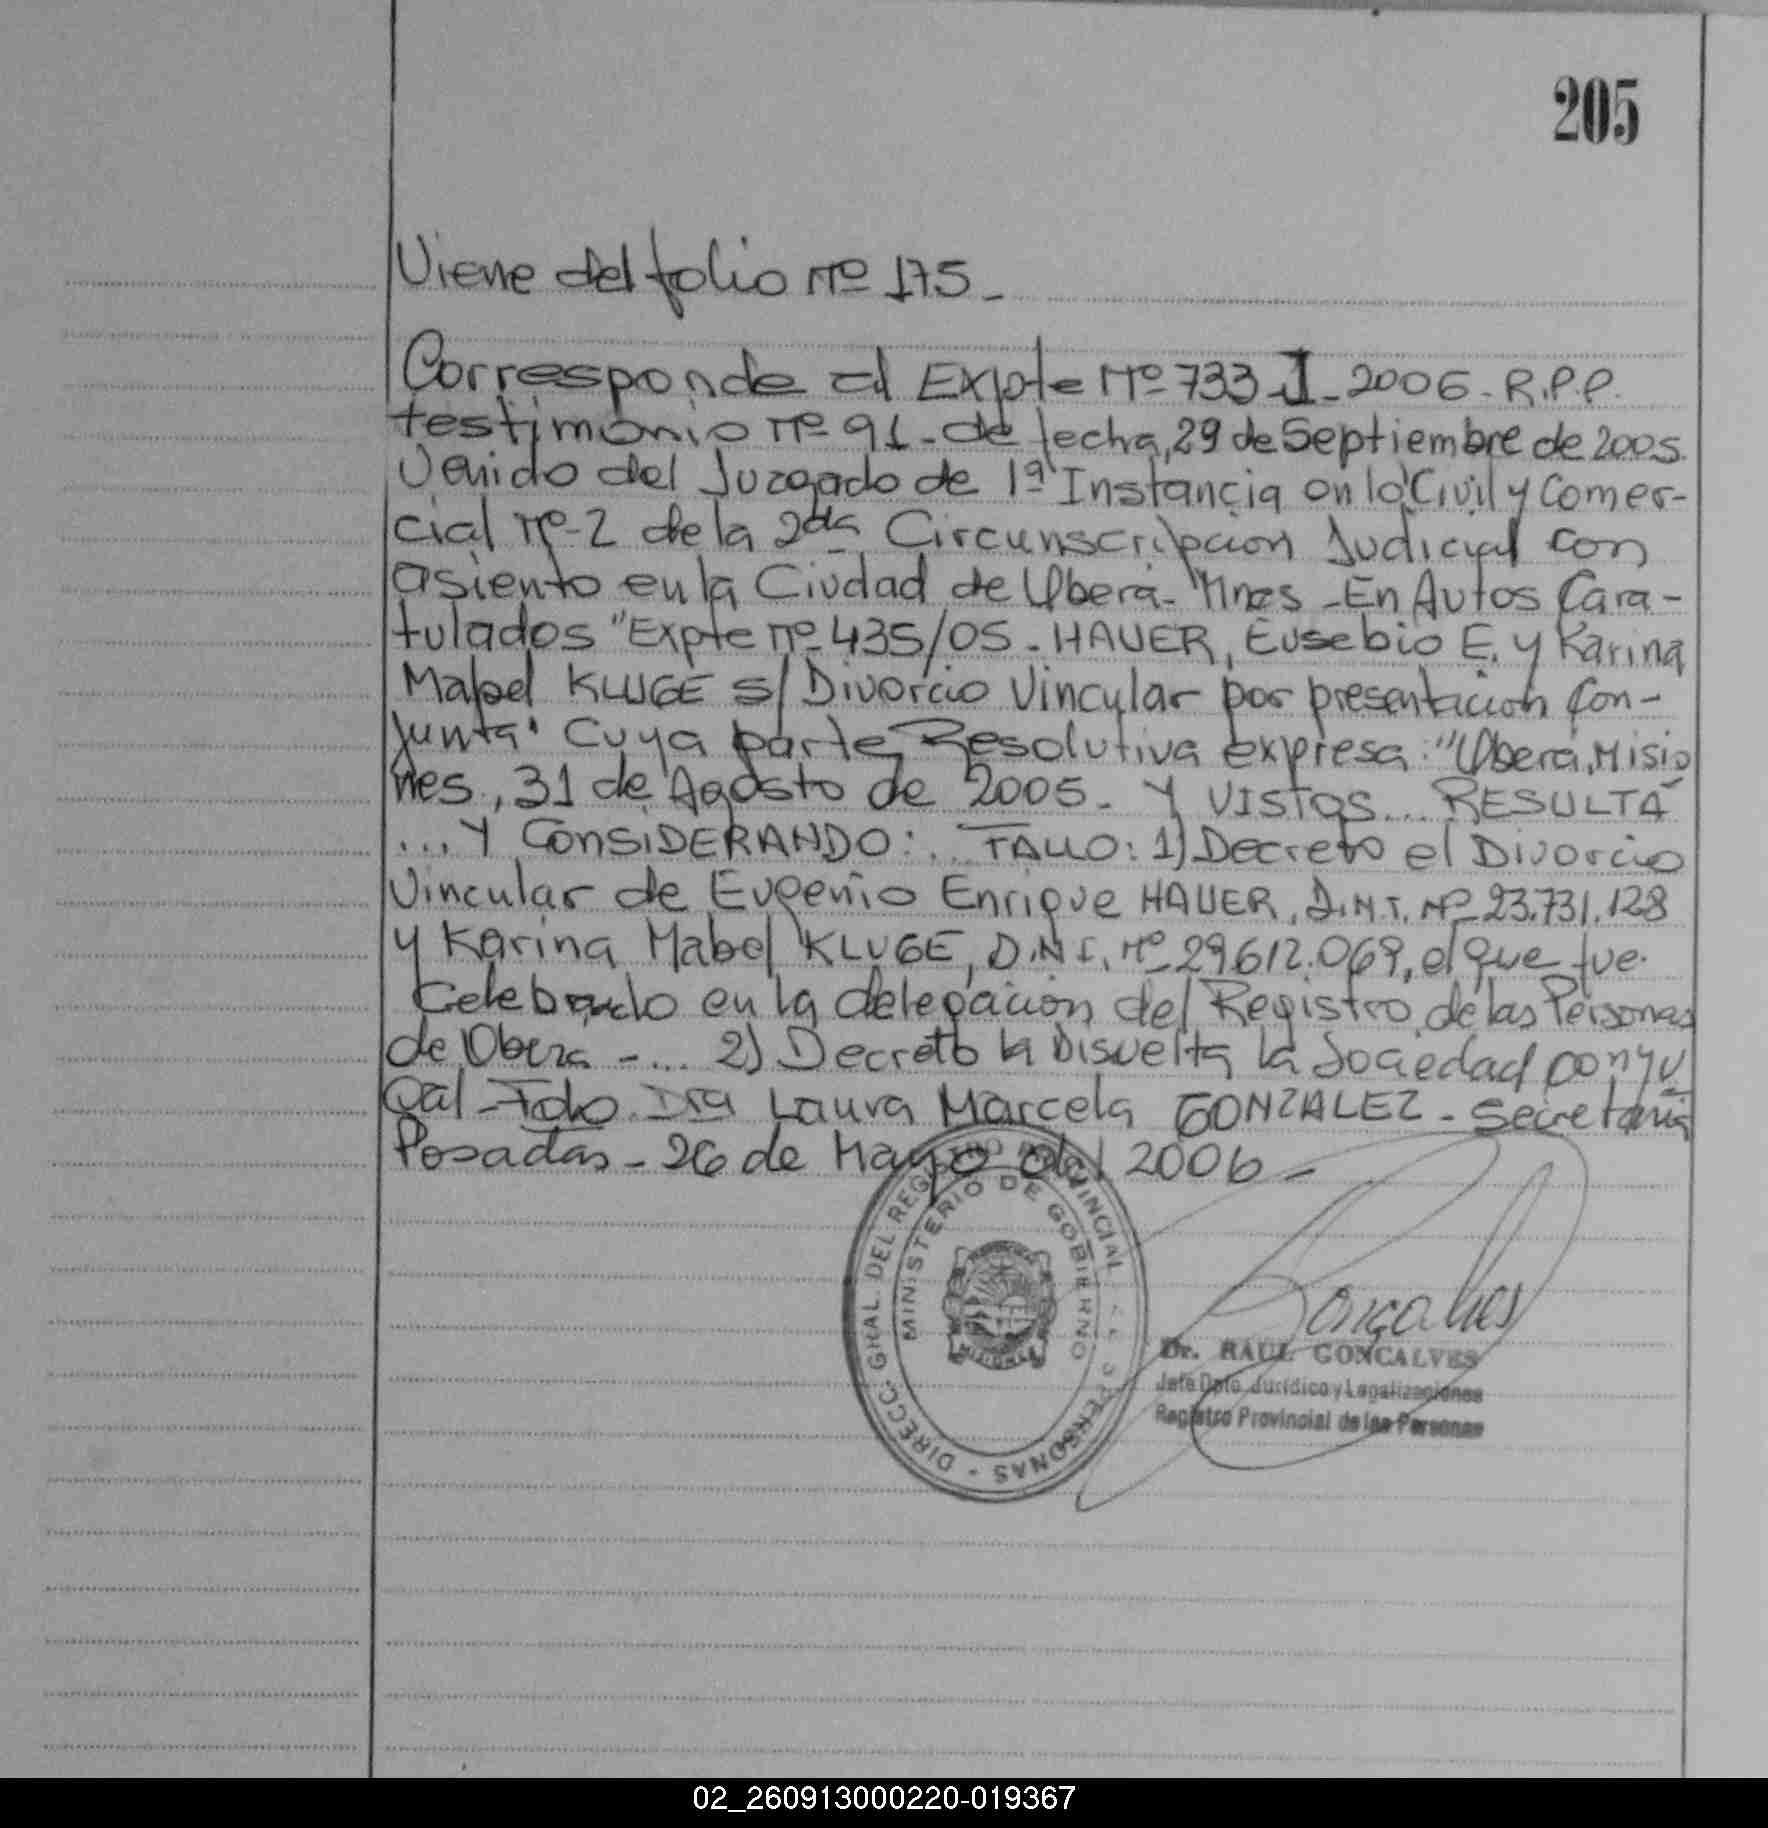 205
Viene del folio Nº 175-
Corresponde al Expte Nº 733-J-2006-R.P.P.
testimonio Nº 91- de fecha, 29 de Septiembre de 2005.
Venido del Juzgado de 1ª Instancia en lo Civil y Comer-
cial Nº-2 de la 2da Circunscripcion Judicial con
asiento en la Ciudad de Obera- Mnes -En Autos Cara-
tulados "Expte Nº 435/05- HAUER, Eusebio E. y Karina
Mabel KLUGE s/ Divorcio Vincular por presentacion Con-
junta" Cuya parte Resolutiva expresa: "Obera, Misio
nes, 31 de Agosto de 2005- Y VISTOS... RESULTA
... Y CONSIDERANDO:... FALLO: 1) Decreto el Divorcio
Vincular de Eugenio Enrique HAUER, D.N.I. Nº 23.731.128
y Karina Mabel KLUGE, D.N.I. Nº 29612.069, el que fue
Celebrado en la delegacion del Registro de las Personas
de Obera -... 2) Decreto la Disuelta la Sociedad conyu
gal-Fdo. Dra Laura Marcela GONZALEZ - Secretaria
Posadas- 26 de Mayo del 2006-
DIRECC. GRAL. DEL REGISTRO PROVINCIAL PERSONAS -
MINISTERIO DE GOBIERNO
MISIONES
Goncalves
Dr. RAUL GONCALVES
Jefe Dpto. Jurídico y Legalizaciones
Registro Provincial de las Personas
02_260913000220-019367